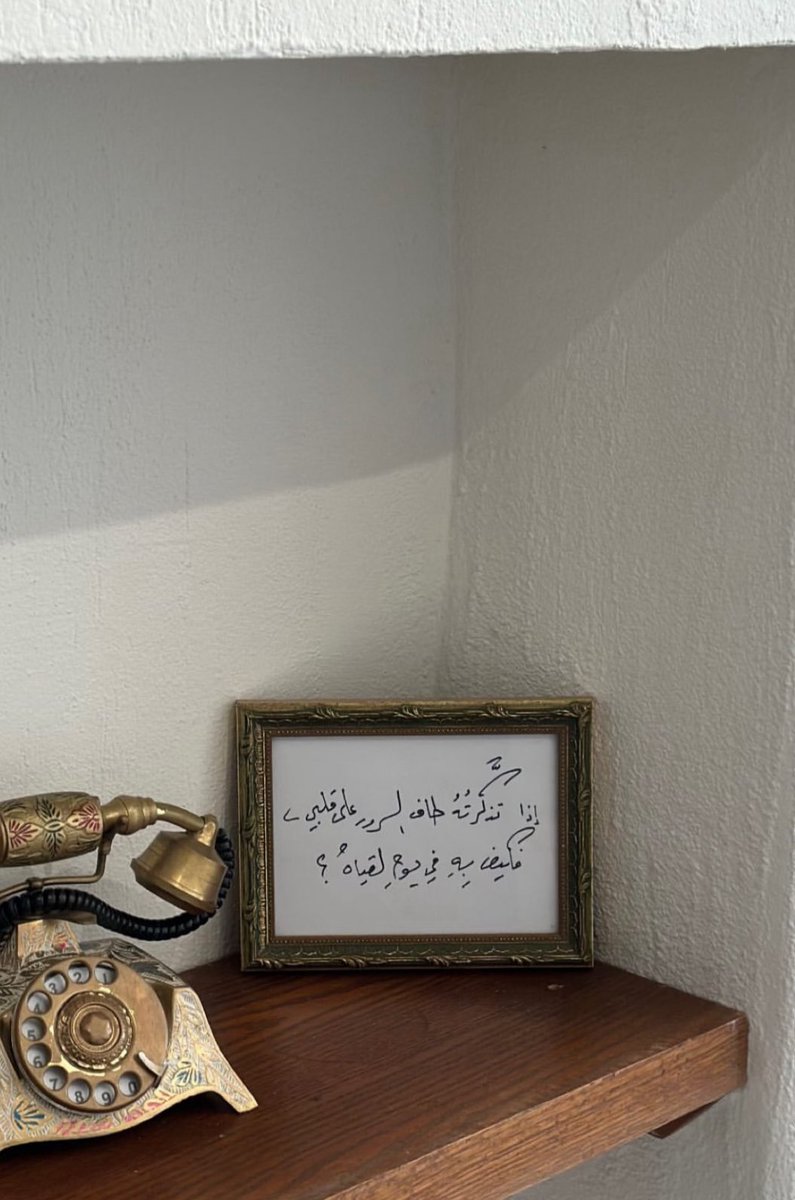 إذا تذكَّرتُهُ طاف السرور على قلبي
فكيف بِهِ فِي يومِ لقياهُ ؟
1 2 3 4 5 6 7 8 9 0